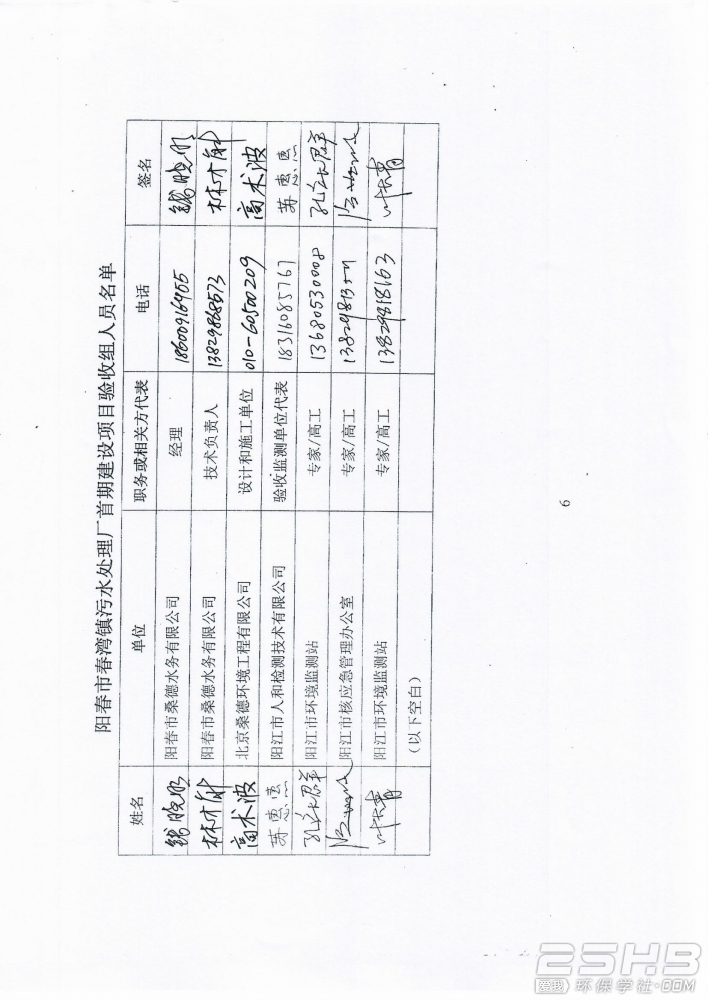 阳春市春湾镇污水处理厂首期建设项目验收组人员名单
姓名 单位 职务或相关方代表 电话 签名
钱晓明 阳春市桑德水务有限公司 经理 18600916955 钱晓明
林才能 阳春市桑德水务有限公司 技术负责人 13829868573 林才能
高术波 北京桑德环境工程有限公司 设计和施工单位 010-60500209 高术波
苏惠 阳江市人和检测技术有限公司 验收监测单位代表 18316085767 苏惠
群 阳江市环境监测站 专家/高工 13680530008 群
阳江市核应急管理办公室 专家/高工
阳江市环境监测站 专家/高工 13829818163
(以下空白)
6
25HB
爱我 环保学社·COM